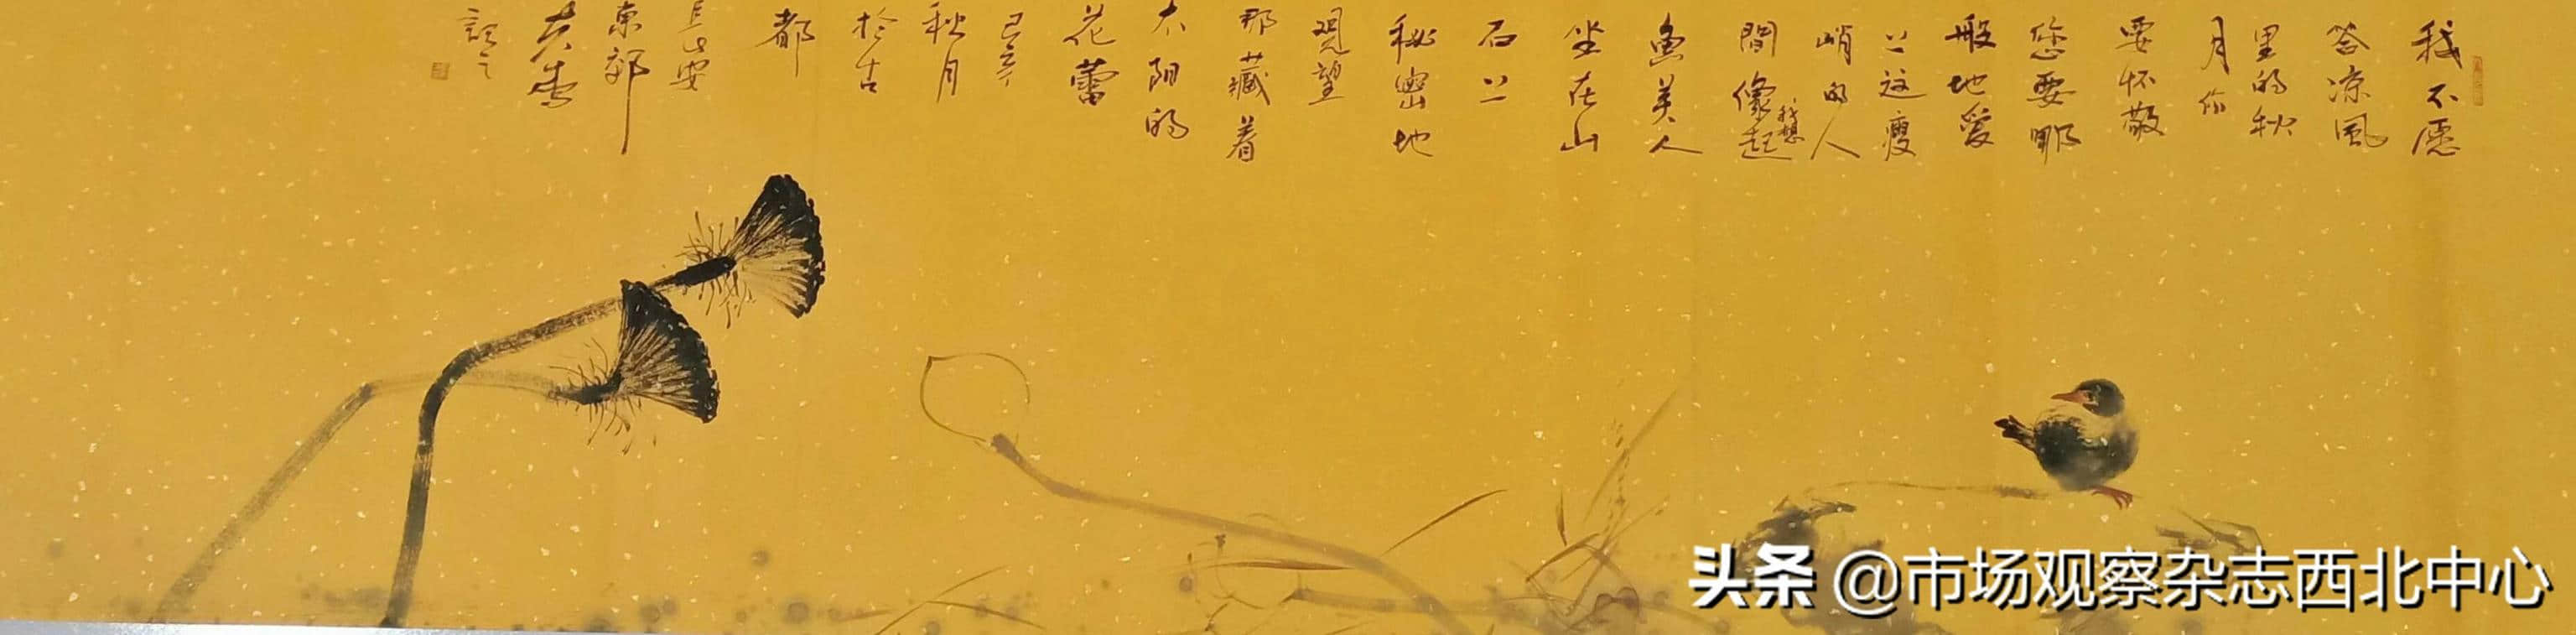 我不愿
答凉风
里的秋
月你
要怀敬
您要那
般地爱
上这瘦
峭的人
間像我想起
魚美人
坐在山
石上
秘密地
观望
那藏着
太阳的
花蕾
秋月
於古
都
长安
东郊
记之
头条 @市场观察杂志西北中心